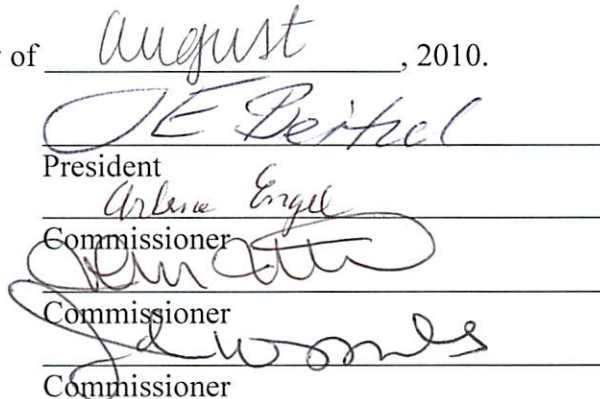 of August, 2010.
JE Beitzel
President
Arlene Engel
Commissioner
Commissioner
Commissioner